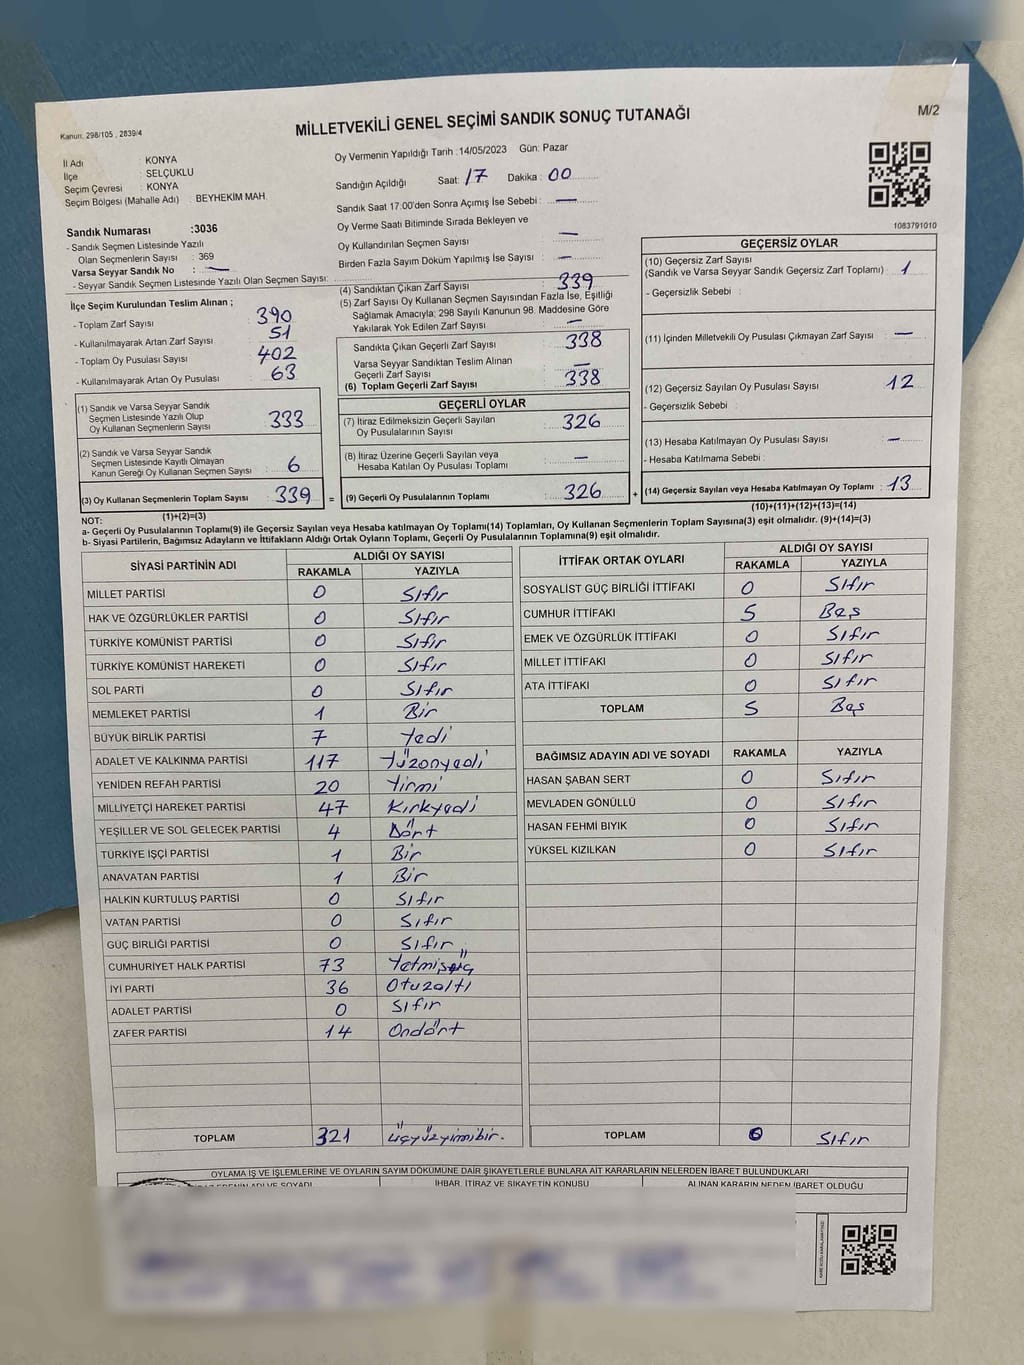 Kanun: 298/105 , 2839/4
MİLLETVEKİLİ GENEL SEÇİMİ SANDIK SONUÇ TUTANAĞI
M/2
İl Adı : KONYA
İlçe : SELÇUKLU
Seçim Çevresi : KONYA
Seçim Bölgesi (Mahalle Adı) : BEYHEKİM MAH.
Sandık Numarası :3036
- Sandık Seçmen Listesinde Yazılı
Olan Seçmenlerin Sayısı : 369
Varsa Seyyar Sandık No : —
- Seyyar Sandık Seçmen Listesinde Yazılı Olan Seçmen Sayısı:
Oy Vermenin Yapıldığı Tarih :14/05/2023 Gün: Pazar
Sandığın Açıldığı Saat: 17 Dakika : 00
Sandık Saat 17:00'den Sonra Açımış İse Sebebi : —
Oy Verme Saati Bitiminde Sırada Bekleyen ve
Oy Kullandırılan Seçmen Sayısı : —
Birden Fazla Sayım Döküm Yapılmış İse Sayısı : —
1083791010
İlçe Seçim Kurulundan Teslim Alınan ;
- Toplam Zarf Sayısı : 390
- Kullanılmayarak Artan Zarf Sayısı : 51
- Toplam Oy Pusulası Sayısı : 402
- Kullanılmayarak Artan Oy Pusulası : 63
(1) Sandık ve Varsa Seyyar Sandık
Seçmen Listesinde Yazılı Olup
Oy Kullanan Seçmenlerin Sayısı : 333
(2) Sandık ve Varsa Seyyar Sandık
Seçmen Listesinde Kayıtlı Olmayan
Kanun Gereği Oy Kullanan Seçmen Sayısı : 6
(3) Oy Kullanan Seçmenlerin Toplam Sayısı : 339
(1)+(2)=(3)
(4) Sandıktan Çıkan Zarf Sayısı : 339
(5) Zarf Sayısı Oy Kullanan Seçmen Sayısından Fazla İse, Eşitliği
Sağlamak Amacıyla; 298 Sayılı Kanunun 98. Maddesine Göre
Yakılarak Yok Edilen Zarf Sayısı : —
Sandıkta Çıkan Geçerli Zarf Sayısı : 338
Varsa Seyyar Sandıktan Teslim Alınan
Geçerli Zarf Sayısı : —
(6) Toplam Geçerli Zarf Sayısı : 338
GEÇERLİ OYLAR
(7) İtiraz Edilmeksizin Geçerli Sayılan
Oy Pusulalarının Sayısı : 326
(8) İtiraz Üzerine Geçerli Sayılan veya
Hesaba Katılan Oy Pusulası Toplamı : —
= (9) Geçerli Oy Pusulalarının Toplamı : 326
GEÇERSİZ OYLAR
(10) Geçersiz Zarf Sayısı
(Sandık ve Varsa Seyyar Sandık Geçersiz Zarf Toplamı) : 1
- Geçersizlik Sebebi :
(11) İçinden Milletvekili Oy Pusulası Çıkmayan Zarf Sayısı : —
(12) Geçersiz Sayılan Oy Pusulası Sayısı : 12
- Geçersizlik Sebebi :
(13) Hesaba Katılmayan Oy Pusulası Sayısı : —
- Hesaba Katılmama Sebebi :
+ (14) Geçersiz Sayılan veya Hesaba Katılmayan Oy Toplamı : 13
(10)+(11)+(12)+(13)=(14)
NOT:
a- Geçerli Oy Pusulalarının Toplamı(9) ile Geçersiz Sayılan veya Hesaba katılmayan Oy Toplamı(14) Toplamları, Oy Kullanan Seçmenlerin Toplam Sayısına(3) eşit olmalıdır. (9)+(14)=(3)
b- Siyasi Partilerin, Bağımsız Adayların ve İttifakların Aldığı Ortak Oyların Toplamı, Geçerli Oy Pusulalarının Toplamına(9) eşit olmalıdır.
SİYASİ PARTİNİN ADI ALDIĞI OY SAYISI
RAKAMLA YAZIYLA
MİLLET PARTİSİ 0 Sıfır
HAK VE ÖZGÜRLÜKLER PARTİSİ 0 Sıfır
TÜRKİYE KOMÜNİST PARTİSİ 0 Sıfır
TÜRKİYE KOMÜNİST HAREKETİ 0 Sıfır
SOL PARTİ 0 Sıfır
MEMLEKET PARTİSİ 1 Bir
BÜYÜK BİRLİK PARTİSİ 7 Yedi
ADALET VE KALKINMA PARTİSİ 117 Yüzonyedi
YENİDEN REFAH PARTİSİ 20 Yirmi
MİLLİYETÇİ HAREKET PARTİSİ 47 Kırkyedi
YEŞİLLER VE SOL GELECEK PARTİSİ 4 Dört
TÜRKİYE İŞÇİ PARTİSİ 1 Bir
ANAVATAN PARTİSİ 1 Bir
HALKIN KURTULUŞ PARTİSİ 0 Sıfır
VATAN PARTİSİ 0 Sıfır
GÜÇ BİRLİĞİ PARTİSİ 0 Sıfır
CUMHURİYET HALK PARTİSİ 73 Yetmişüç
İYİ PARTİ 36 Otuzaltı
ADALET PARTİSİ 0 Sıfır
ZAFER PARTİSİ 14 Ondört
TOPLAM 321 üçyüzyirmibir.
İTTİFAK ORTAK OYLARI ALDIĞI OY SAYISI
RAKAMLA YAZIYLA
SOSYALİST GÜÇ BİRLİĞİ İTTİFAKI 0 Sıfır
CUMHUR İTTİFAKI 5 Beş
EMEK VE ÖZGÜRLÜK İTTİFAKI 0 Sıfır
MİLLET İTTİFAKI 0 Sıfır
ATA İTTİFAKI 0 Sıfır
TOPLAM 5 Beş
BAĞIMSIZ ADAYIN ADI VE SOYADI RAKAMLA YAZIYLA
HASAN ŞABAN SERT 0 Sıfır
MEVLADEN GÖNÜLLÜ 0 Sıfır
HASAN FEHMİ BIYIK 0 Sıfır
YÜKSEL KIZILKAN 0 Sıfır
TOPLAM 0 Sıfır
OYLAMA İŞ VE İŞLEMLERİNE VE OYLARIN SAYIM DÖKÜMÜNE DAİR ŞİKAYETLERLE BUNLARA AİT KARARLARIN NELERDEN İBARET BULUNDUKLARI
ADI VE SOYADI İHBAR, İTİRAZ VE ŞİKAYETİN KONUSU ALINAN KARARIN NEDEN İBARET OLDUĞU